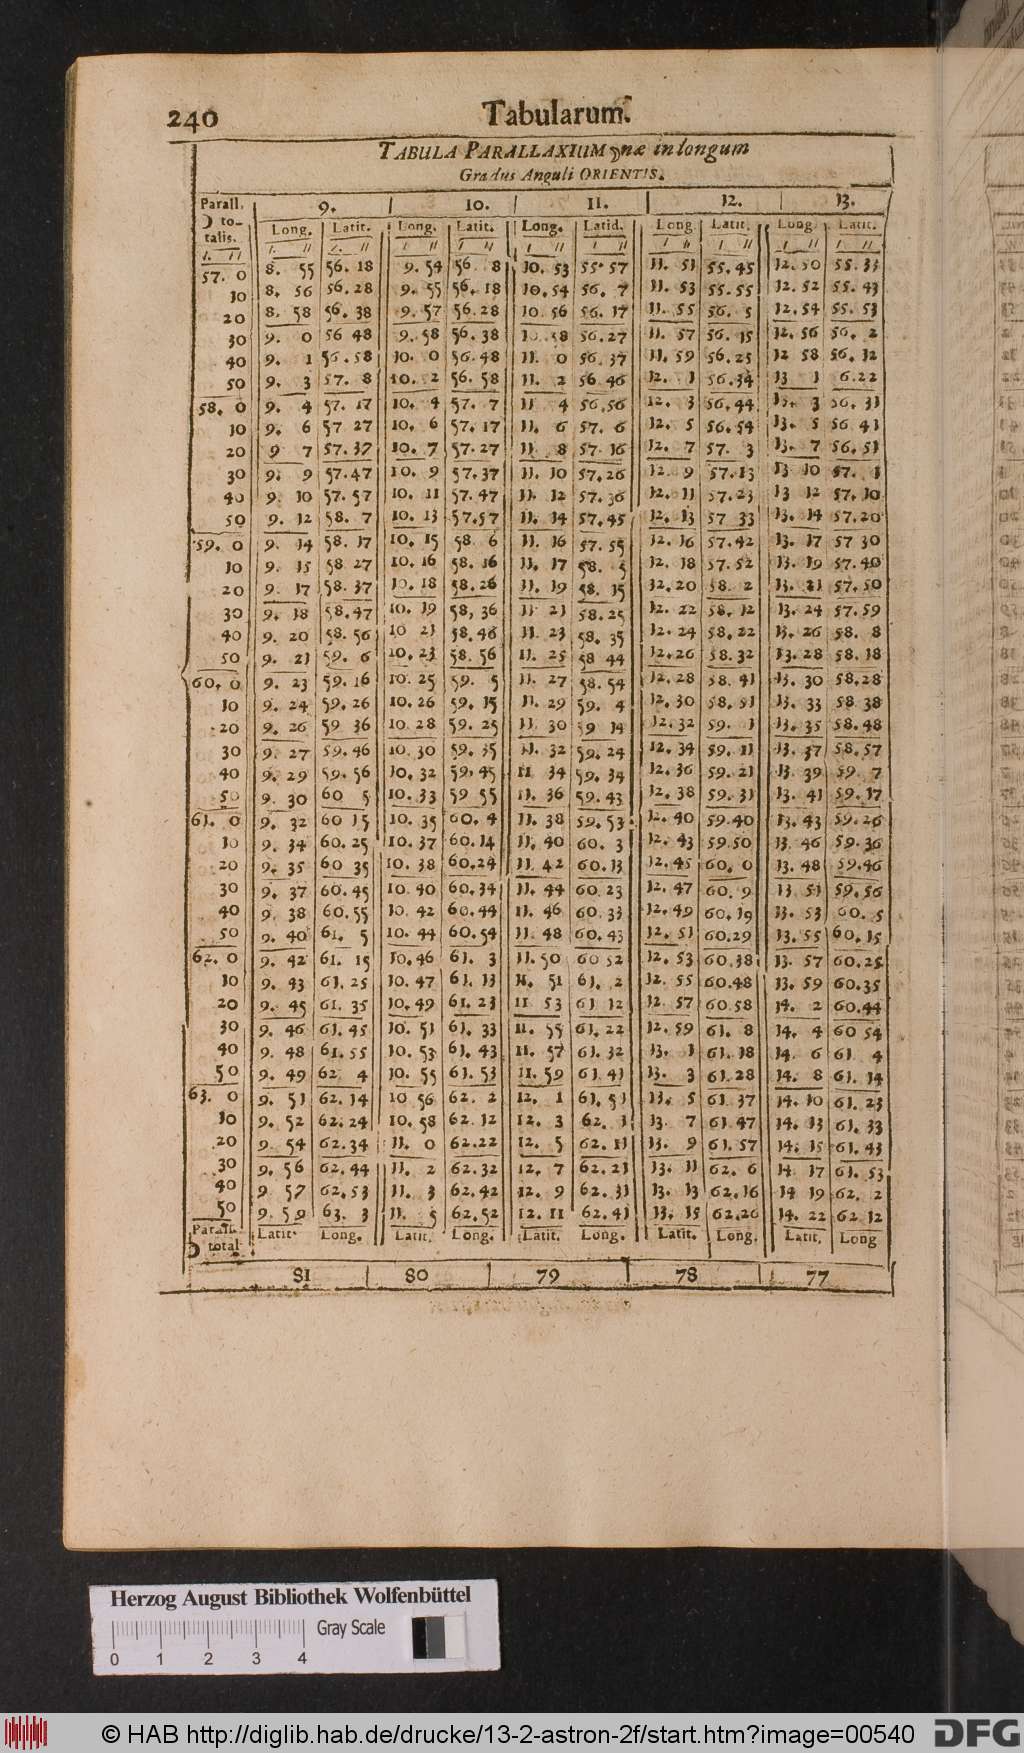 240 Tabularum.
TABULA PARALLAXIUM ☽næ in longum
Gradus Anguli ORIENTIS.
Parall. ☽ to- talis. | 9. | 10. | 11. | 12. | 13.
Long. Latit. | Long. Latit. | Long. Latid. | Long. Latit. | Long. Latit.
ı. ıı | ı. ıı ı. ıı | ı ıı ı ıı | ı ıı ı ıı | ı ıı ı ıı | ı ıı ı ıı
57. 0 | 8. 55 56. 18 | 9. 54 56 8 | 10. 53 55. 57 | 11. 51 55. 45 | 12. 50 55. 33
10 | 8. 56 56. 28 | 9. 55 56. 18 | 10. 54 56. 7 | 11. 53 55. 55 | 12. 52 55. 43
20 | 8. 58 56. 38 | 9. 57 56. 28 | 10. 56 56. 17 | 11. 55 56. 5 | 12. 54 55. 53
30 | 9. 0 56 48 | 9. 58 56. 38 | 10. 58 56. 27 | 11. 57 56. 15 | 12. 56 56. 2
40 | 9. 1 56. 58 | 10. 0 56. 48 | 11. 0 56. 37 | 11. 59 56. 25 | 12 58 56. 12
50 | 9. 3 57. 8 | 10. 2 56. 58 | 11. 2 56 46 | 12. 1 56. 34 | 13 1 6. 22
58. 0 | 9. 4 57. 17 | 10. 4 57. 7 | 11 4 56. 56 | 12. 3 56. 44 | 13. 3 56. 31
10 | 9. 6 57 27 | 10. 6 57. 17 | 11. 6 57. 6 | 12. 5 56. 54 | 13. 5 56 41
20 | 9 7 57. 37 | 10. 7 57. 27 | 11. 8 57. 16 | 12. 7 57. 3 | 13. 7 56. 51
30 | 9. 9 57. 47 | 10. 9 57. 37 | 11. 10 57. 26 | 12. 9 57. 13 | 13 10 57. 1
40 | 9. 10 57. 57 | 10. 11 57. 47 | 11. 12 57. 36 | 12. 11 57. 23 | 13 12 57. 10
50 | 9. 12 58. 7 | 10. 13 57. 57 | 11. 14 57. 45 | 12. 13 57 33 | 13. 14 57. 20
59. 0 | 9. 14 58. 17 | 10. 15 58. 6 | 11. 16 57. 55 | 12. 16 57. 42 | 13. 17 57 30
10 | 9. 15 58. 27 | 10. 16 58. 16 | 11. 17 58. 5 | 12. 18 57. 52 | 13. 19 57. 40
20 | 9. 17 58. 37 | 10. 18 58. 26 | 11. 19 58. 15 | 12. 20 58. 2 | 13. 21 57. 50
30 | 9. 18 58. 47 | 10. 19 58, 36 | 11 21 58. 25 | 12. 22 58. 12 | 13. 24 57. 59
40 | 9. 20 58. 56 | 10 21 58. 46 | 11. 23 58. 35 | 12. 24 58. 22 | 13. 26 58. 8
50 | 9. 21 59. 6 | 10. 23 58. 56 | 11. 25 58 44 | 12. 26 58. 32 | 13. 28 58. 18
60. 0 | 9. 23 59. 16 | 10. 25 59. 5 | 11. 27 58. 54 | 12. 28 58. 41 | 13. 30 58. 28
10 | 9. 24 59. 26 | 10. 26 59. 15 | 11. 29 59. 4 | 12. 30 58. 51 | 13. 33 58 38
20 | 9. 26 59 36 | 10. 28 59. 25 | 11. 30 59 14 | 12. 32 59. 1 | 13. 35 58. 48
30 | 9. 27 59. 46 | 10. 30 59. 35 | 11. 32 59. 24 | 12. 34 59. 11 | 13. 37 58. 57
40 | 9. 29 59. 56 | 10. 32 59. 45 | 11 34 59. 34 | 12. 36 59. 21 | 13. 39 59. 7
50 | 9. 30 60 5 | 10. 33 59 55 | 11. 36 59. 43 | 12. 38 59. 31 | 13. 41 59. 17
61. 0 | 9. 32 60 15 | 10. 35 60. 4 | 11. 38 59. 53 | 12. 40 59. 40 | 13. 43 59. 26
10 | 9. 34 60. 25 | 10. 37 60. 14 | 11. 40 60. 3 | 12. 43 59. 50 | 13. 46 59. 36
20 | 9. 35 60 35 | 10. 38 60. 24 | 11. 42 60. 13 | 12. 45 60. 0 | 13. 48 59. 46
30 | 9. 37 60. 45 | 10. 40 60. 34 | 11. 44 60 23 | 12. 47 60. 9 | 13 51 59. 56
40 | 9. 38 60. 55 | 10. 42 60. 44 | 11. 46 60. 33 | 12. 49 60. 19 | 13. 53 60. 5
50 | 9. 40 61. 5 | 10. 44 60. 54 | 11. 48 60. 43 | 12. 51 60. 29 | 13. 55 60. 15
62. 0 | 9. 42 61. 15 | 10. 46 61. 3 | 11. 50 60 52 | 12. 53 60. 38 | 13. 57 60. 25
10 | 9. 43 61. 25 | 10. 47 61. 13 | 11. 51 61. 2 | 12. 55 60. 48 | 13. 59 60. 35
20 | 9. 45 61. 35 | 10. 49 61. 23 | 11 53 61 12 | 12. 57 60. 58 | 14. 2 60. 44
30 | 9. 46 61. 45 | 10. 51 61. 33 | 11. 55 61. 22 | 12. 59 61. 8 | 14. 4 60 54
40 | 9. 48 61. 55 | 10. 53 61. 43 | 11. 57 61. 32 | 13. 1 61. 18 | 14. 6 61 4
50 | 9. 49 62 4 | 10. 55 61. 53 | 11. 59 61. 41 | 13. 3 61. 28 | 14. 8 61. 14
63. 0 | 9. 51 62. 14 | 10 56 62. 2 | 12. 1 61. 51 | 13. 5 61. 37 | 14. 10 61. 23
10 | 9. 52 62. 24 | 10. 58 62. 12 | 12. 3 62. 1 | 13. 7 61. 47 | 14. 13 61. 33
20 | 9. 54 62. 34 | 11. 0 62. 22 | 12. 5 62. 11 | 13. 9 61. 57 | 14. 15 61. 43
30 | 9. 56 62. 44 | 11. 2 62. 32 | 12. 7 62. 21 | 13. 11 62. 6 | 14 17 61. 53
40 | 9 57 62. 53 | 11. 3 62. 42 | 12. 9 62. 31 | 13. 13 62. 16 | 14 19 62. 2
50 | 9. 59 63. 3 | 11. 5 62. 52 | 12. 11 62. 41 | 13. 15 62. 26 | 14. 22 62 12
Parall. ☽ total | Latit. Long. | Latit. Long. | Latit. Long. | Latit. Long. | Latit. Long
81 | 80 | 79 | 78 | 77
Herzog August Bibliothek Wolfenbüttel
Gray Scale
0 1 2 3 4
© HAB http://diglib.hab.de/drucke/13-2-astron-2f/start.htm?image=00540 DFG